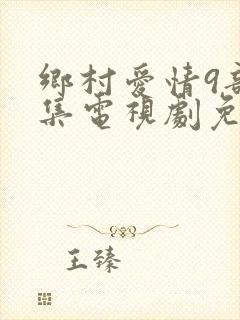 鄉村愛情9部
集電視劇免
王臻